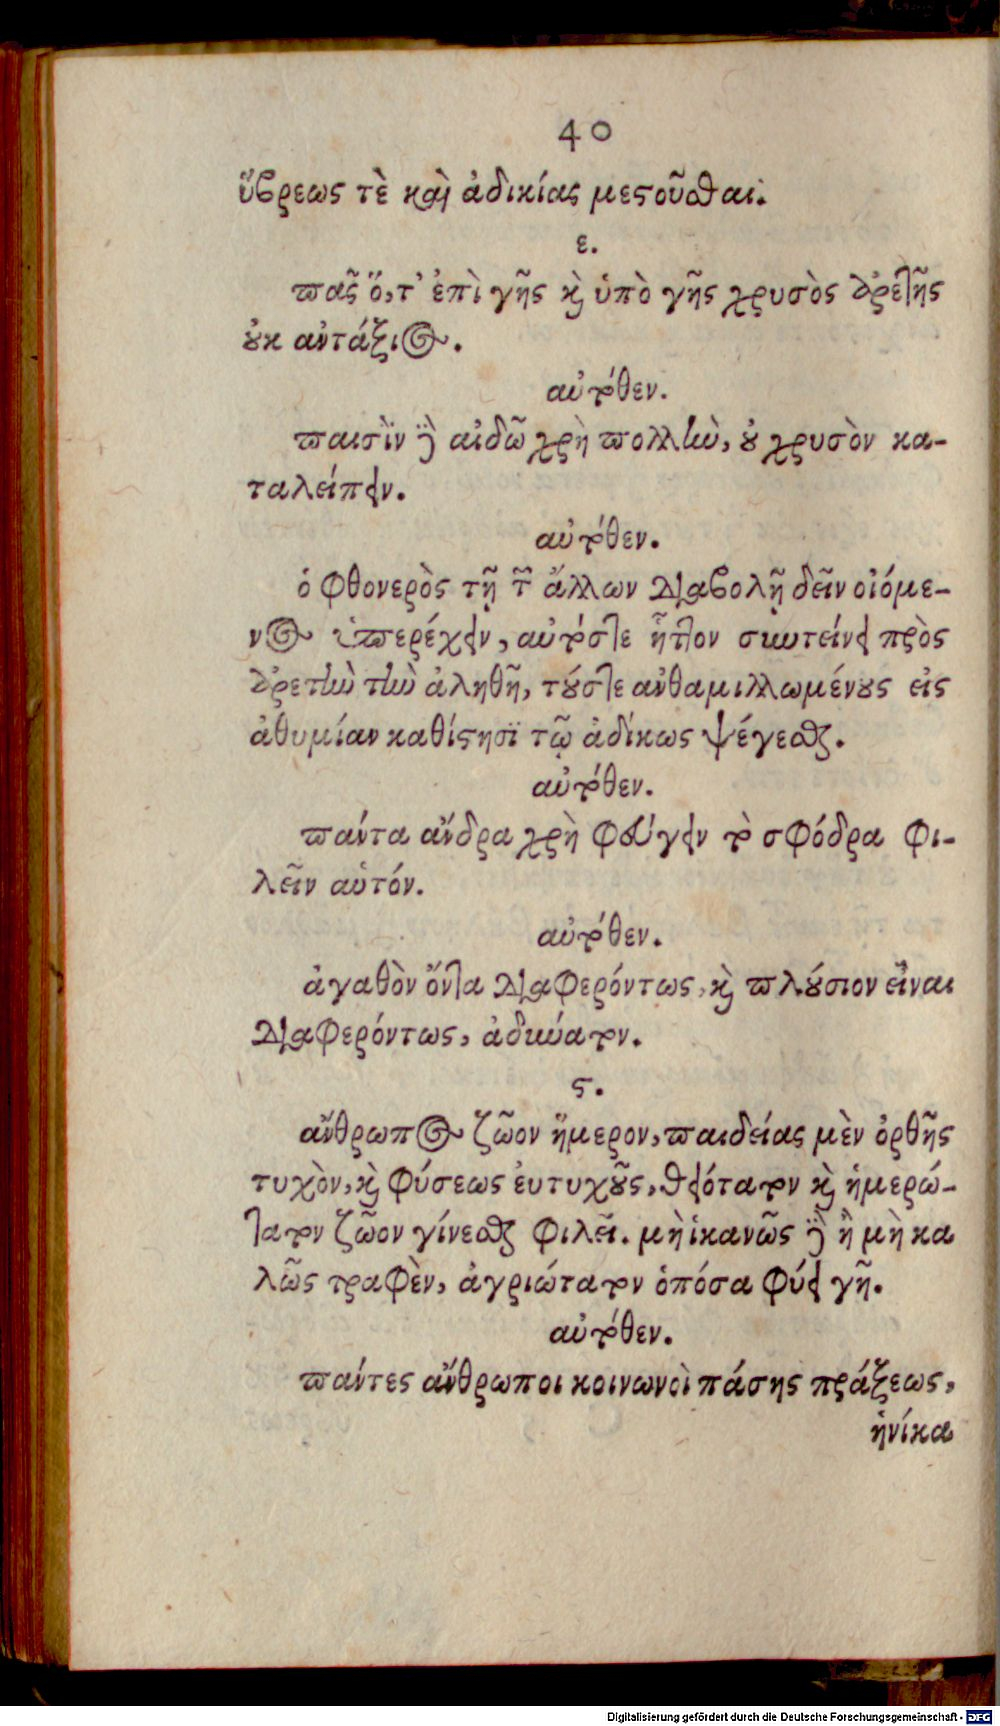 40
ὕβρεως τὲ καὶ ἀδικίας μεστοῦσθαι.
ε.
πᾶς ὅ,τ' ἐπὶ γῆς καὶ ὑπὸ γῆς χρυσὸς ἀρετῆς
οὐκ ἀντάξιος.
αὐτόθεν.
παισὶν δὲ αἰδῶ χρὴ πολλὴν, οὐ χρυσὸν κα-
ταλείπειν.
αὐτόθεν.
ὁ φθονερὸς τῇ τῶν ἄλλων διαβολῇ δεῖν οἰόμε-
νος ὑπερέχειν, αὐτόστε ἧττον συντείνει πρὸς
ἀρετὴν τὴν ἀληθῆ, τούστε ἀνθαμιλλωμένους εἰς
ἀθυμίαν καθίστησι τῷ ἀδίκως ψέγεσθαι.
αὐτόθεν.
πάντα ἄνδρα χρὴ φεύγειν τὸ σφόδρα φι-
λεῖν αὑτόν.
αὐτόθεν.
ἀγαθὸν ὄντα διαφερόντως, καὶ πλούσιον εἶναι
διαφερόντως, ἀδύνατον.
ς.
ἄνθρωπος ζῶον ἥμερον, παιδείας μὲν ὀρθῆς
τυχὸν, καὶ φύσεως εὐτυχοῦς, θειότατον καὶ ἡμερώ-
τατον ζῶον γίνεσθαι φιλεῖ. μὴ ἱκανῶς δὲ ἢ μὴ κα
λῶς τραφὲν, ἀγριώτατον ὁπόσα φύει γῆ.
αὐτόθεν.
πάντες ἄνθρωποι κοινωνοὶ πάσης πράξεως,
ἡνίκα
Digitalisierung gefördert durch die Deutsche Forschungsgemeinschaft - DFG